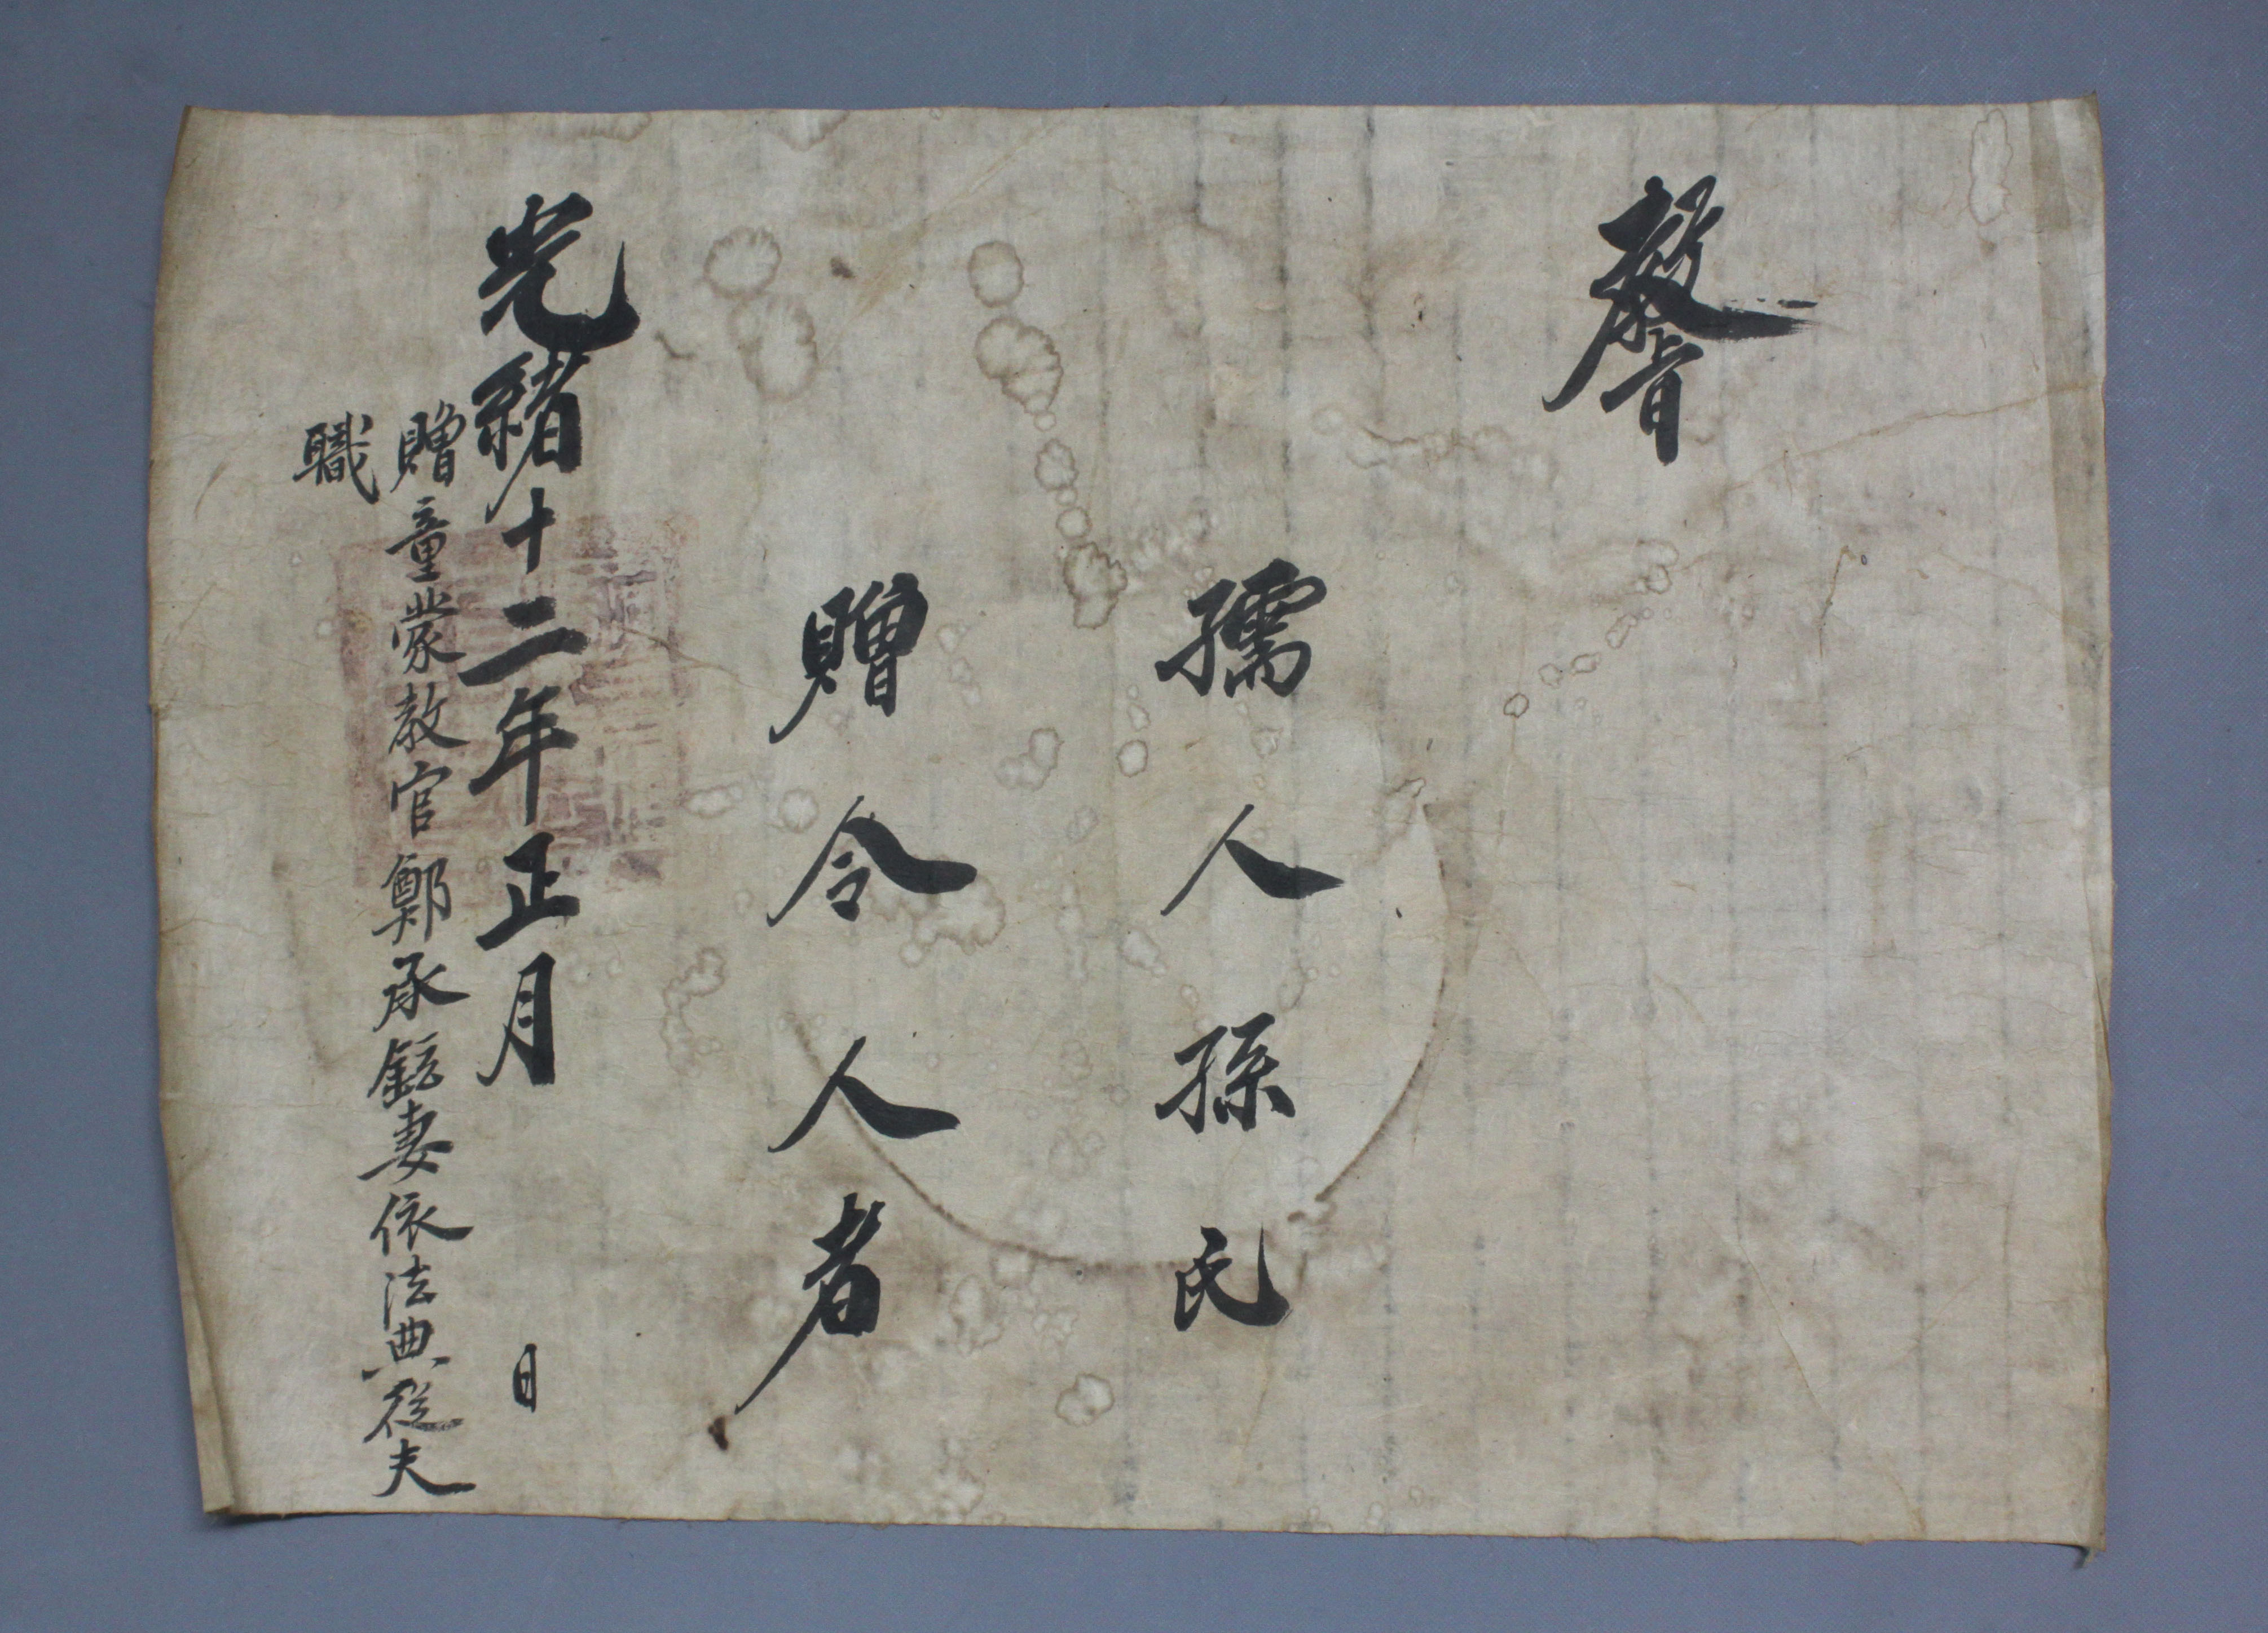 教旨
孺人孫氏
贈令人者
光緖十二年正月 日
贈童蒙教官鄭承鋐妻依法典從夫
職